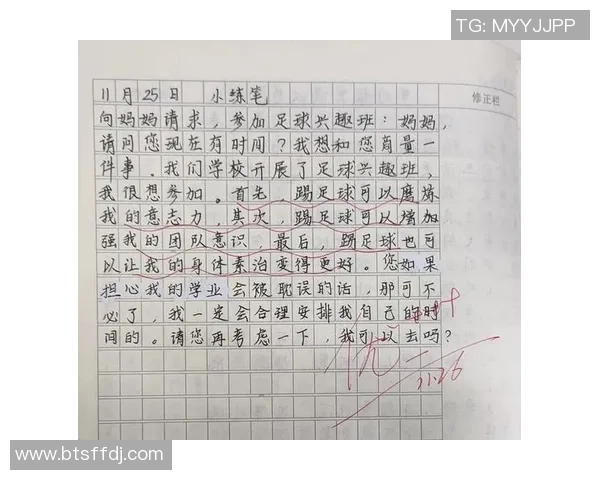 TG: MYYJJPP
修正栏
11月25日 小练笔
向妈妈请求,参加足球兴趣班:妈妈,
请问您现在有时间?我想和您商量一
件事。我们学校开展了足球兴趣班,
我很想参加。首先,踢足球可以磨炼
我的意志力,其次,踢足球可以增加
强我的团队意识,最后,踢足球也可
以让我的身体素治变得更好。您如果
担心我的学业会被耽误的话,那可不
必了,我一定会合理安排我自己的时
间的。请您再考虑一下,我可以去吗?
优
11.26
www.btsffdj.com